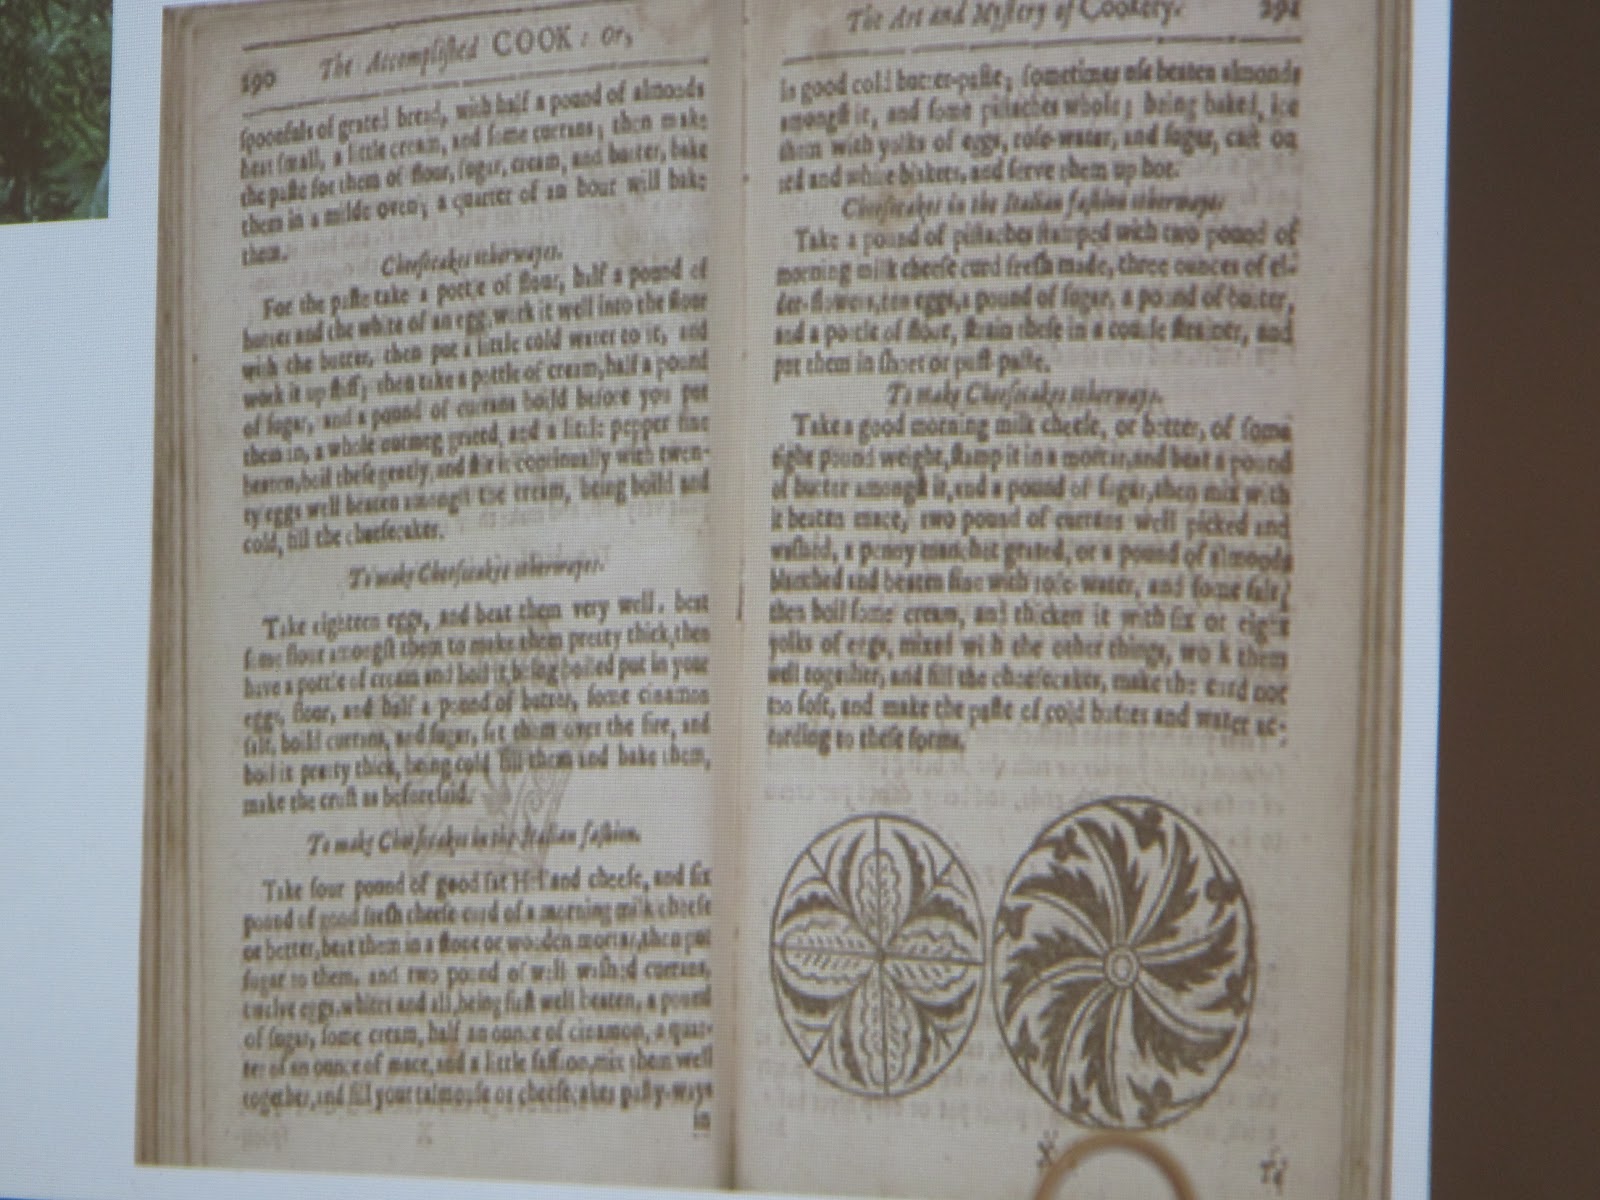 290 The Accomplisſhed COOK: Or,
ſpoonfuls of grated bread, with half a pound of almonds
beat ſmall, a little cream, and ſome currans; then make
the paſte for them of flour, ſugar, cream, and butter, bake
them in a milde oven; a quarter of an hour will bake
them.
Cheeſecakes otherwayes.
For the paſte take a pottle of flour, half a pound of
butter and the white of an egg, work it well into the flour
with the butter, then put a little cold water to it, and
work it up ſtiff; then take a pottle of cream, half a pound
of ſugar, and a pound of currans boild before you put
them in, a whole nutmeg grated, and a little pepper fine
beaten, boil theſe gently, and ſtir it continually with twen-
ty eggs well beaten amongſt the cream, being boild and
cold, fill the cheeſecakes.
To make Cheeſecakes otherwayes.
Take eighteen eggs, and beat them very well, beat
ſome flour amongſt them to make them pretty thick, then
have a pottle of cream and boil it, being boiled put in your
eggs, flour, and half a pound of butter, ſome cinamon
ſalt, boild currans, and ſugar, ſet them over the fire, and
boil it pretty thick, being cold fill them and bake them,
make the cruſt as beforeſaid.
To make Cheeſecakes in the Italian faſhion.
Take four pound of good fat Holland cheeſe, and ſix
pound of good freſh cheeſe curd of a morning milk cheeſe
or better, beat them in a ſtone or wooden mortar, then put
ſugar to them, and two pound of well waſhed currans,
twelve eggs, whites and all, being firſt well beaten, a pound
of ſugar, ſome cream, half an ounce of cinamon, a quar-
ter of an ounce of mace, and a little ſaffron, mix them well
together, and fill your talmouſe or cheeſecakes paſty-ways
in
The Art and Myſtery of Cookery. 291
in good cold butter-paſte; ſometimes uſe beaten almonds
amongſt it, and ſome piſtaches whole; being baked, ice
them with yolks of eggs, roſe-water, and ſugar, caſt on
red and white biskets, and ſerve them up hot.
Cheeſecakes in the Italian faſhion otherwayes
Take a pound of piſtaches ſtamped with two pound of
morning milk cheeſe curd freſh made, three ounces of el-
der-flowers, ten eggs, a pound of ſugar, a pound of butter,
and a pottle of flour, ſtrain theſe in a courſe ſtrainer, and
put them in ſhort or puff-paſte.
To make Cheeſecakes otherways.
Take a good morning milk cheeſe, or better, of ſome
eight pound weight, ſtamp it in a mortar, and beat a pound
of butter amongſt it, and a pound of ſugar, then mix with
it beaten mace, two pound of currans well picked and
waſhed, a penny manchet grated, or a pound of almonds
blanched and beaten fine with roſe-water, and ſome ſalt;
then boil ſome cream, and thicken it with ſix or eight
yolks of eggs, mixed with the other things, work them
well together, and fill the cheeſecakes, make the curd not
too ſoft, and make the paſte of cold butter and water ac-
cording to theſe forms.
To